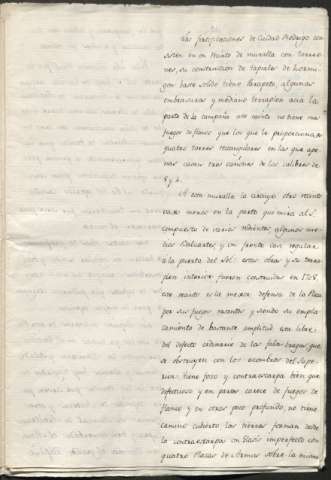 Las fortificaciones de Ciudad Rodrigo con
sisten en un recinto de muralla con torreo
nes, su construccion de tapiales de hormi
gon hasta solido tiene Parapeto, algunas
embrasuras y mediano terraplen acia la
parte de la campaña este recinto no tiene mas
fuegos de flanco que los que le proporcionan
quatro torres rectangulares en las que ape
nas caven tres cañones de los calibres de
8 y 4.
A esta muralla la circuye otro recinto
menos en la parte que mira al S.
compuesto de varios redientes, algunos me
dios Baluartes y un frente casi regular
a la puerta del Sol: estas obras y su terra
plen interior fueron construidas en 1708,
este recinto es la mejor defensa de la Plaza
por sus fuegos rasantes y siendo su empla
zamiento de bastante amplitud esta libre
del defecto ordinario de las falsabragas que
se obstruyen con los escombros del supe
rior: tiene foso y contraescarpa bien que
defectuoso y en partes carece de fuegos de
flanco y en otras poco profundo, no tiene
camino cubierto las tierras forman desde
la contraescarpa un Glasis imperfecto con
quatro Plazas de Armas sobre la misma